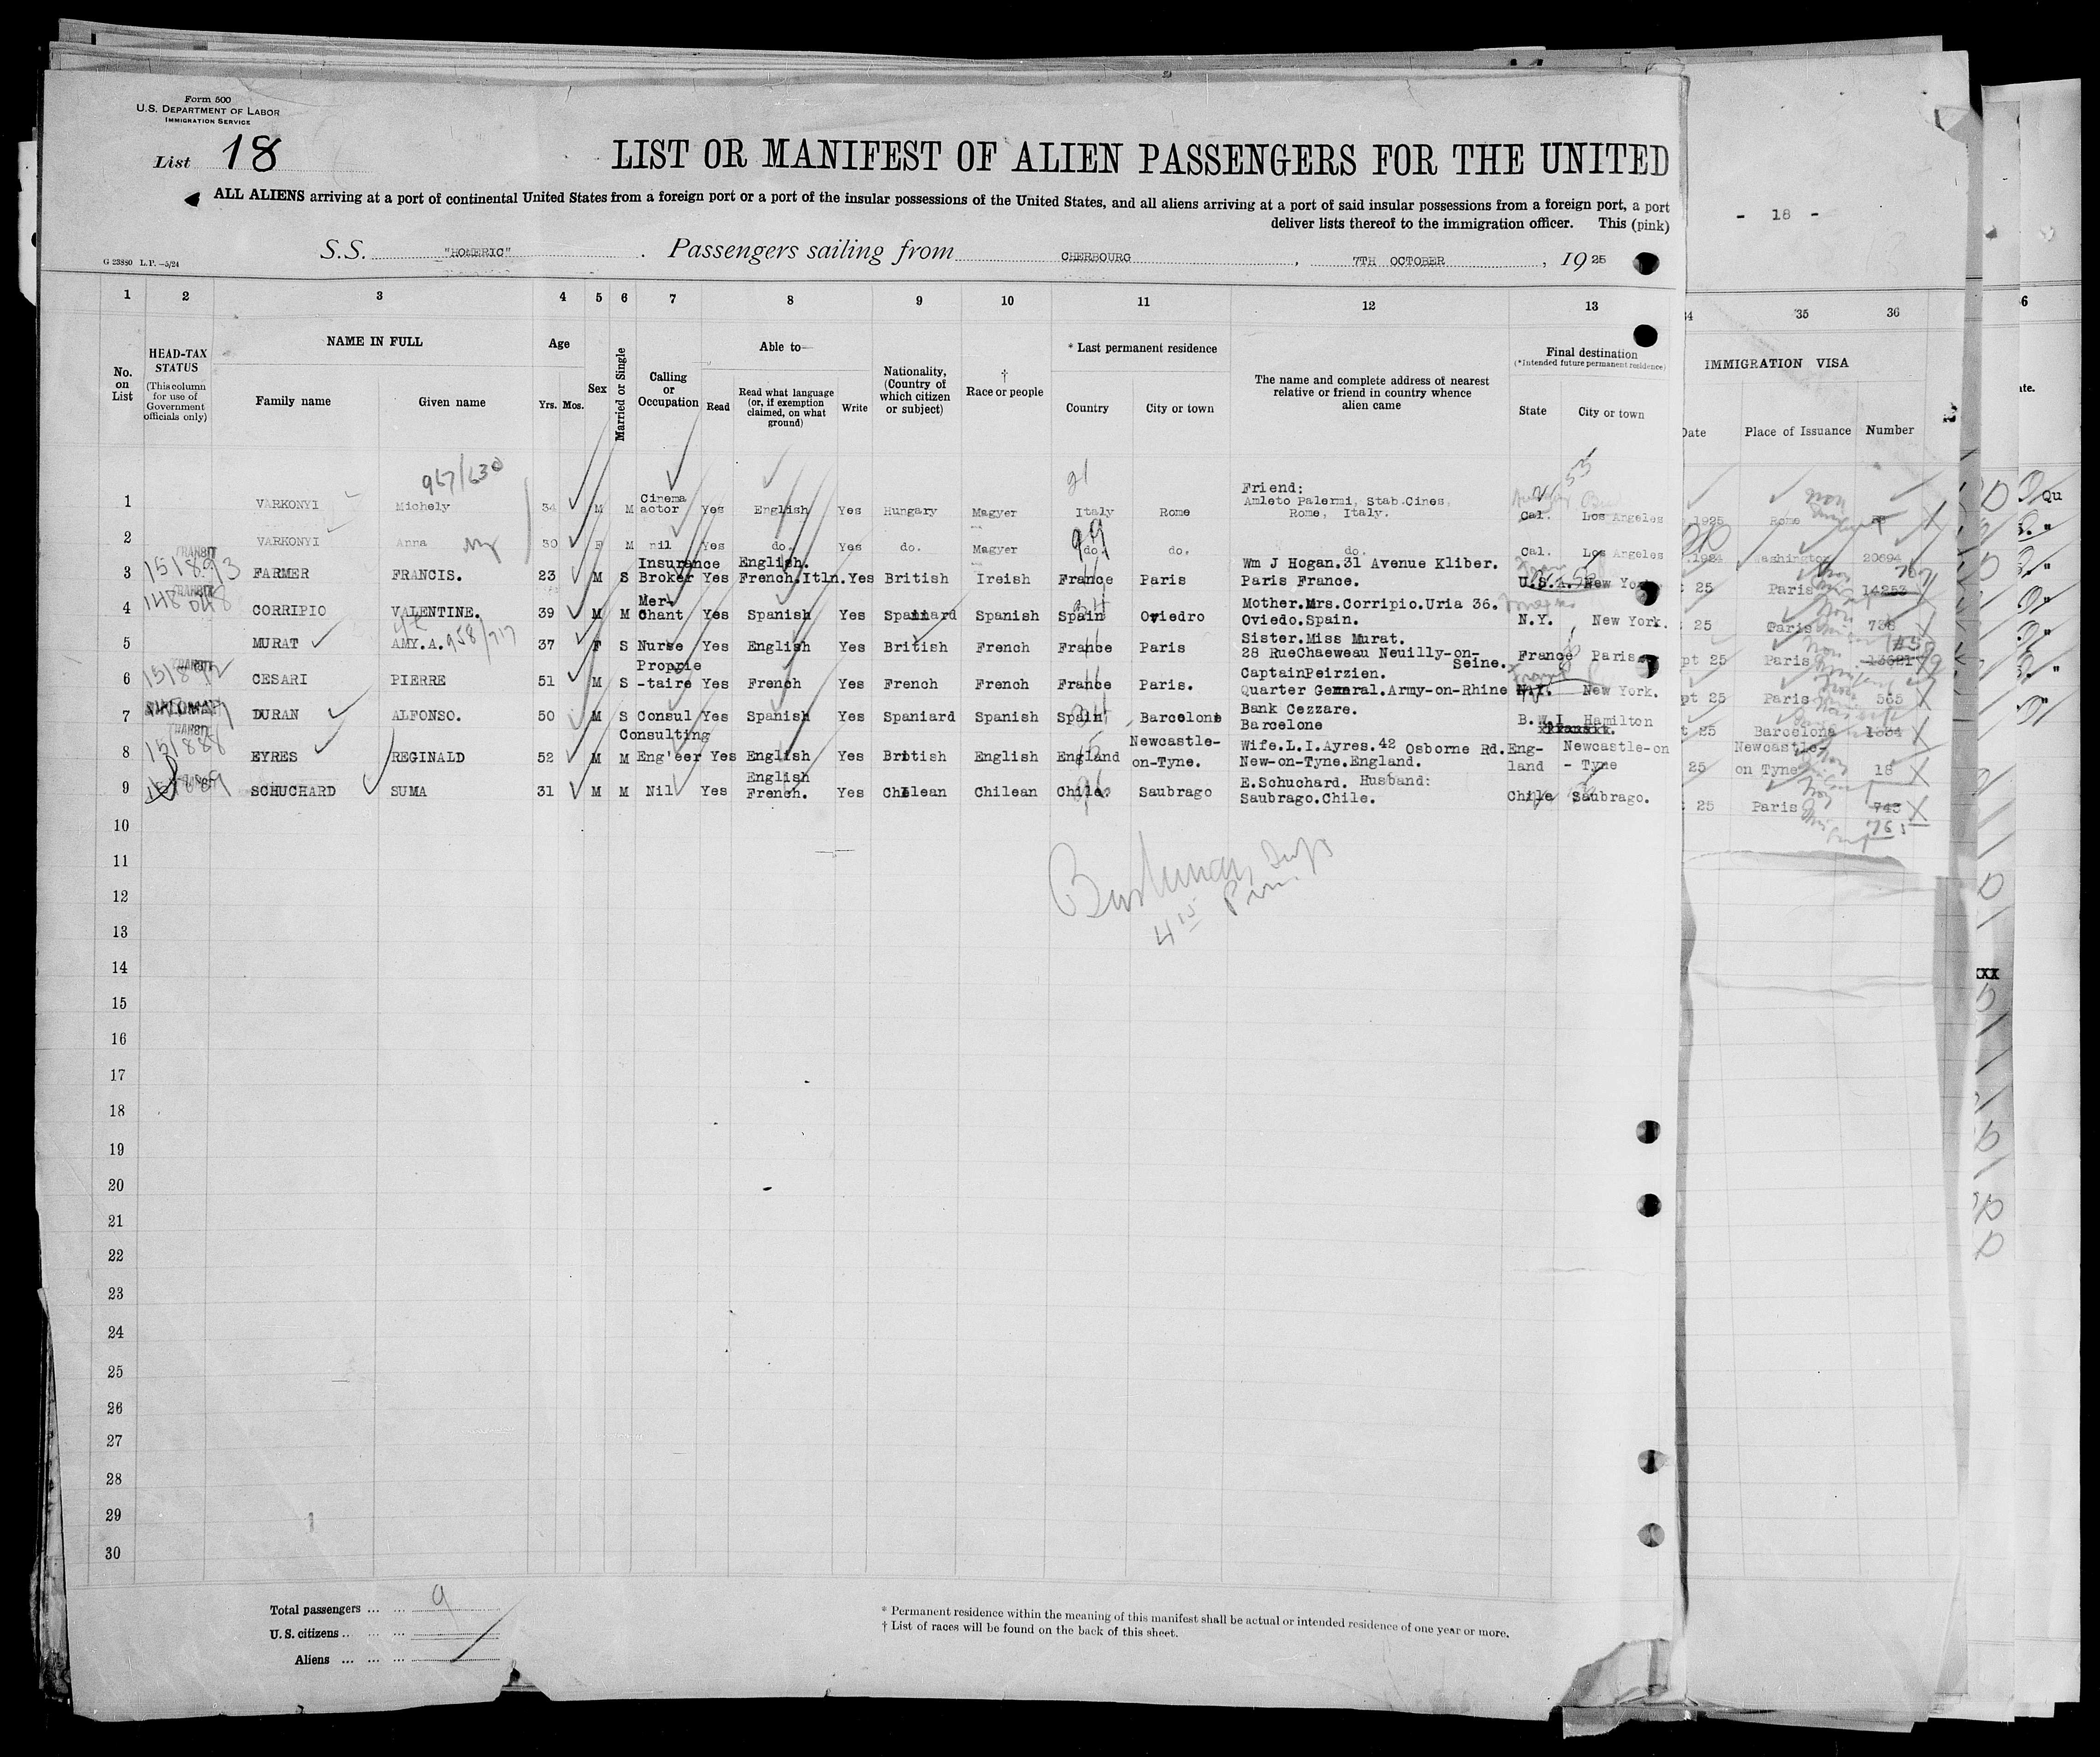 Form 500
U.S. DEPARTMENT OF LABOR
IMMIGRATION SERVICE
List 18
LIST OR MANIFEST OF ALIEN PASSENGERS FOR THE UNITED
ALL ALIENS arriving at a port of continental United States from a foreign port or a port of the insular possessions of the United States, and all aliens arriving at a port of said insular possessions from a foreign port, a port
deliver lists thereof to the immigration officer. This (pink)
- 18 -
G 23880 L.P.—5/24
S.S. "HOMERIC". Passengers sailing from CHERBOURG, 7TH OCTOBER, 19 25
1 2 3 4 5 6 7 8 9 10 11 12 13 34 35 36 6
No. on List
HEAD-TAX STATUS
(This column for use of Government officials only)
NAME IN FULL
Family name Given name
Age
Yrs. Mos.
Sex
Married or Single
Calling or Occupation
Able to—
Read
Read what language (or, if exemption claimed, on what ground)
Write
Nationality, (Country of which citizen or subject)
† Race or people
* Last permanent residence
Country City or town
The name and complete address of nearest relative or friend in country whence alien came
Final destination
(*Intended future permanent residence)
State City or town
IMMIGRATION VISA
Date Place of Issuance Number
967/630
1 VARKONYI Michely 34 M M Cinema actor Yes English Yes Hungary Magyer Italy Rome Friend: Amleto Palermi, Stab.Cines, Rome, Italy. Cal. Los Angeles 1925 Rome
2 VARKONYI Anna 30 F M nil Yes do. Yes do. Magyer do. do. do. Cal. Los Angeles 1924 Washington 20694
3 TRANSIT 151893 FARMER FRANCIS. 23 M S Insurance Broker Yes English. French.Itln. Yes British Ireish France Paris Wm J Hogan.31 Avenue Kliber. Paris France. U.S.A. New York 25 Paris 14253
4 TRANSIT 148048 CORRIPIO VALENTINE. 39 M M Mer- Chant Yes Spanish Yes Spaniard Spanish Spain Oviedro Mother.Mrs.Corripio.Uria 36. Oviedo.Spain. N.Y. New York. 25 Paris 738
5 MURAT AMY.A. 958/717 37 F S Nurse Yes English Yes British French France Paris Sister.Miss Murat. 28 RueChaeweau Neuilly-on-Seine. France Paris. pt 25 Paris 13621
6 TRANSIT 151892 CESARI PIERRE 51 M S Proprie -taire Yes French Yes French French France Paris. CaptainPeirzien. Quarter General.Army-on-Rhine N.Y. New York. pt 25 Paris 565
7 DIPLOMAT DURAN ALFONSO. 50 M S Consul Yes Spanish Yes Spaniard Spanish Spain Barcelone Bank Cezzare. Barcelone B.W.I Hamilton t 25 Barcelona 1334
8 TRANSIT 151888 EYRES REGINALD 52 M M Consulting Eng'eer Yes English Yes British English England Newcastle-on-Tyne. Wife.L.I.Ayres.42 Osborne Rd. New-on-Tyne.England. Eng-land Newcastle-on - Tyne 25 Newcastle-on Tyne 18
9 151889 SCHUCHARD SUMA 31 M M Nil Yes English French. Yes Chilean Chilean Chile. Saubrago E.Schuchard. Husband: Saubrago.Chile. Chile Saubrago. 25 Paris 743
761
10
11
12
13
14
15
16
17
18
19
20
21
22
23
24
25
26
27
28
29
30
Total passengers ... ... 9
U.S. citizens .. ... ...
Aliens ... ... ...
* Permanent residence within the meaning of this manifest shall be actual or intended residence of one year or more.
† List of races will be found on the back of this sheet.